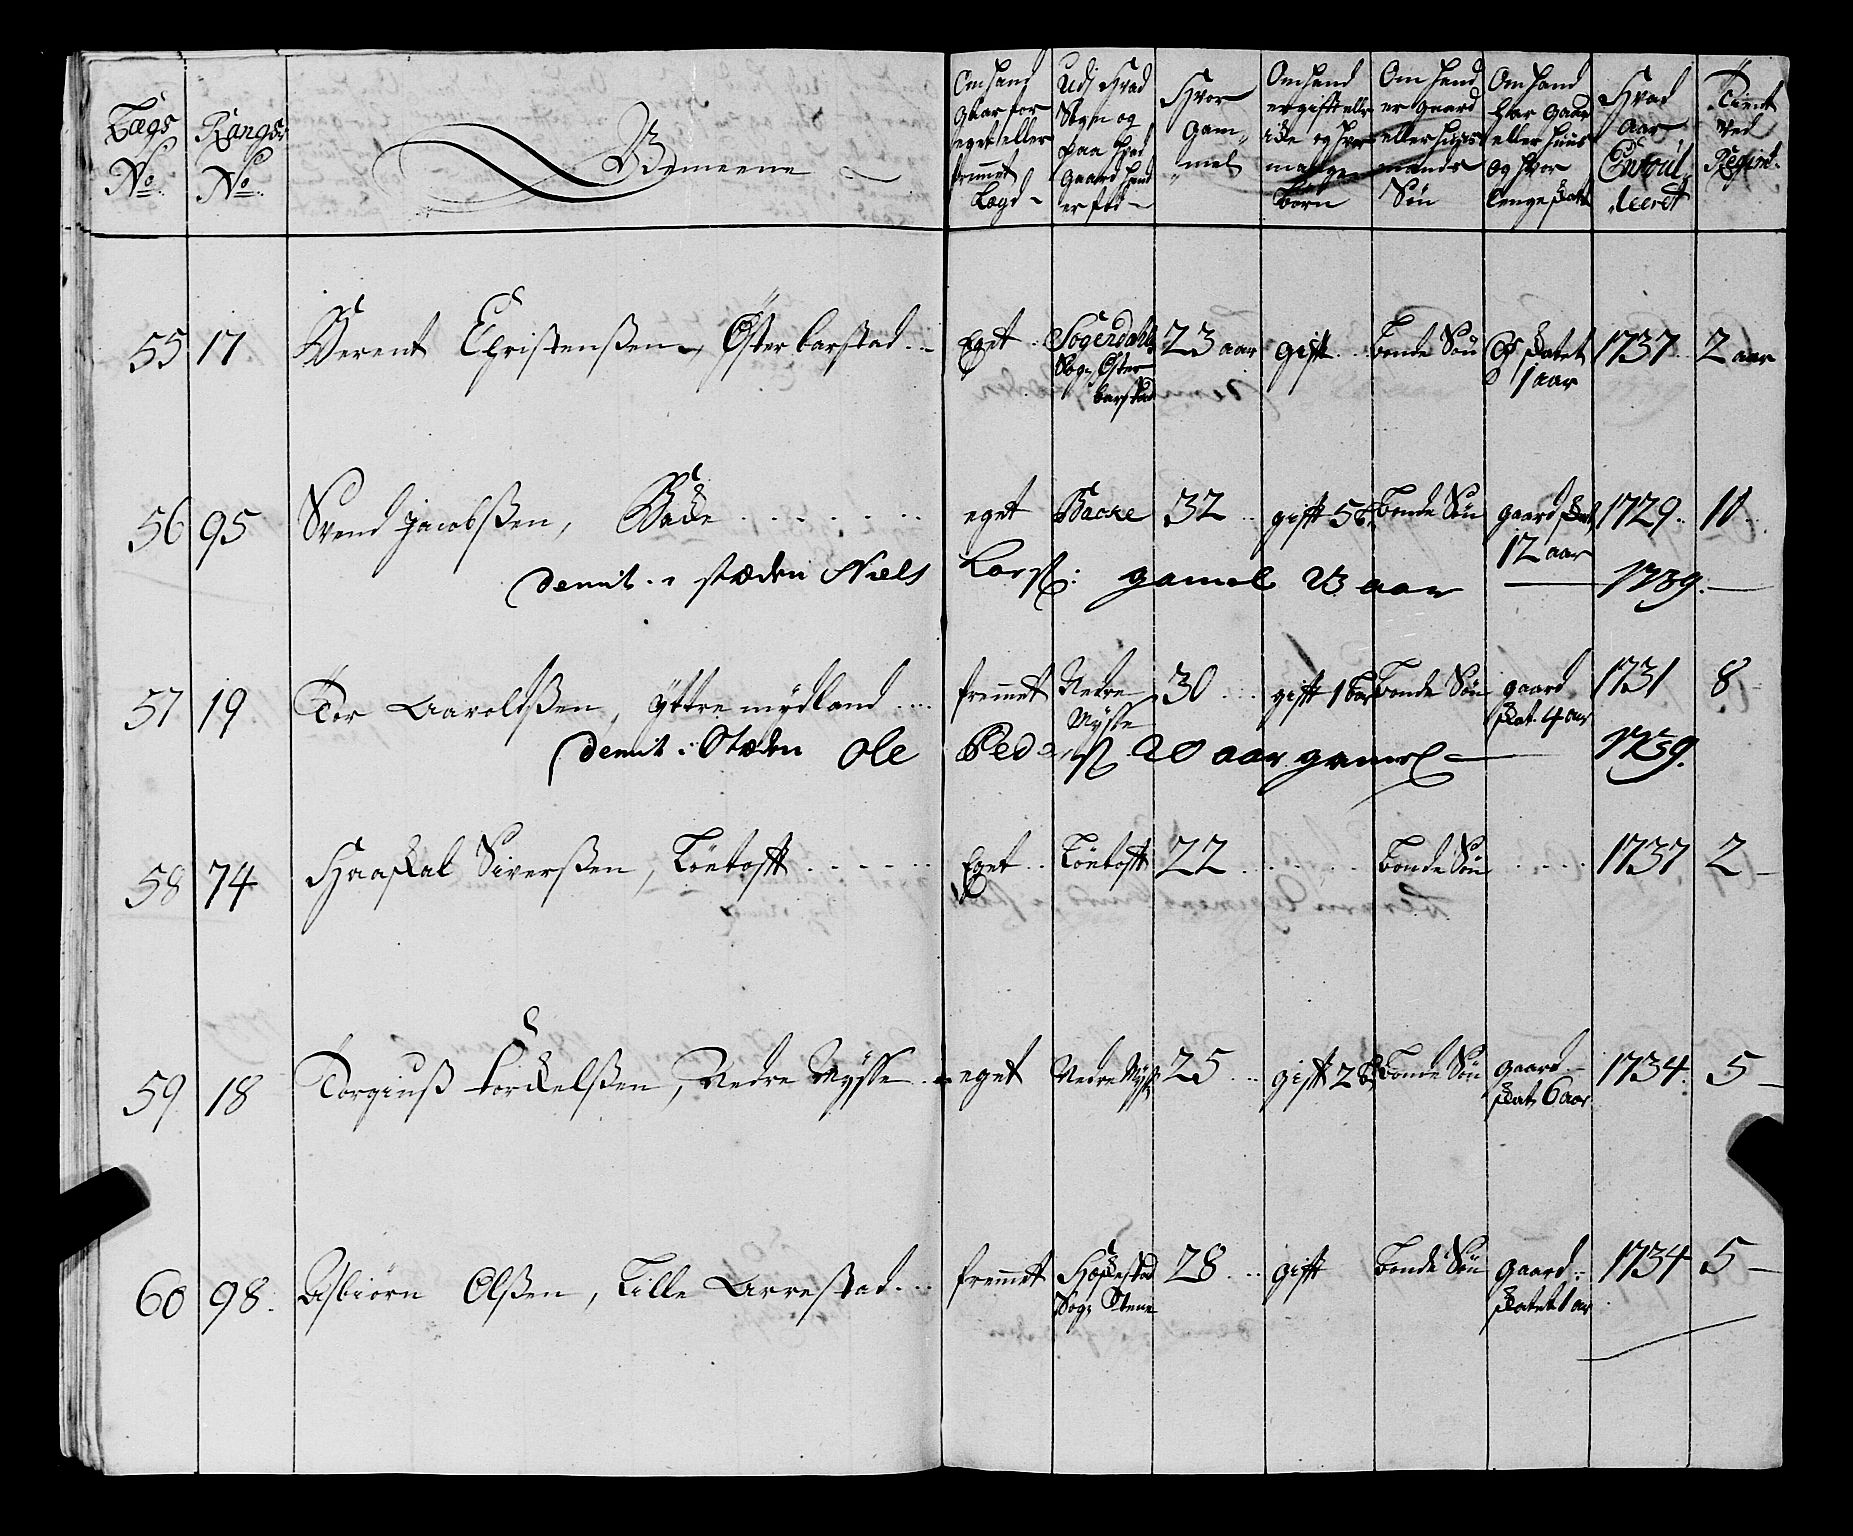 Lægs No
Rangs No
Gemeene
Om hand gaar for eget eller fremmet Lægd
Udj hvad Sogn og paa hvad Gaard hand er fød
Hvor gammel
Om hand er gift eller icke og hvor mange Børn
Om hand er gaard eller huusmands Søn
Om hand har gaard eller huus og hvor lenge skatt
Hvad aar Enroulleeret
Tient ved Regimt
55 17 Berent Christenßen, Öster barstad Eget Sogendahls Sogn Öster barstad 23 aar gift bonde Søn Og skatet 1 aar 1737 2 aar
56 95 Svend Jacobßen, Backe eget Backe 32 gift 5 b bonde Søn gaard skat 12 aar 1729 10
demit. i stæden Niels Larß: gamel 23 aar 1739.
57 19 Tor Aaroldßen, Yttre mydland fremmet Nedre Mysse 30 gift 1 bar bonde Søn gaard skat 4 aar 1731 8
demit i Stæden Ole Pedersß 20 aar gamel 1739.
58 74 Haaskal Siverßen, Töetofft Eget Töetofft 22 bonde Søn 1737 2
59 18 Torgiuß torckelßen, Nedre Mysse eget Nedre Mysse 25 gift 2 b bonde Søn gaard skat 6 aar 1734 5
60 98 Asbiörn Olßen, Lille Arrestad fremmet Hæskestad Sogn Steene 28 gift bonde Søn gaard skatet 1 aar 1734 5